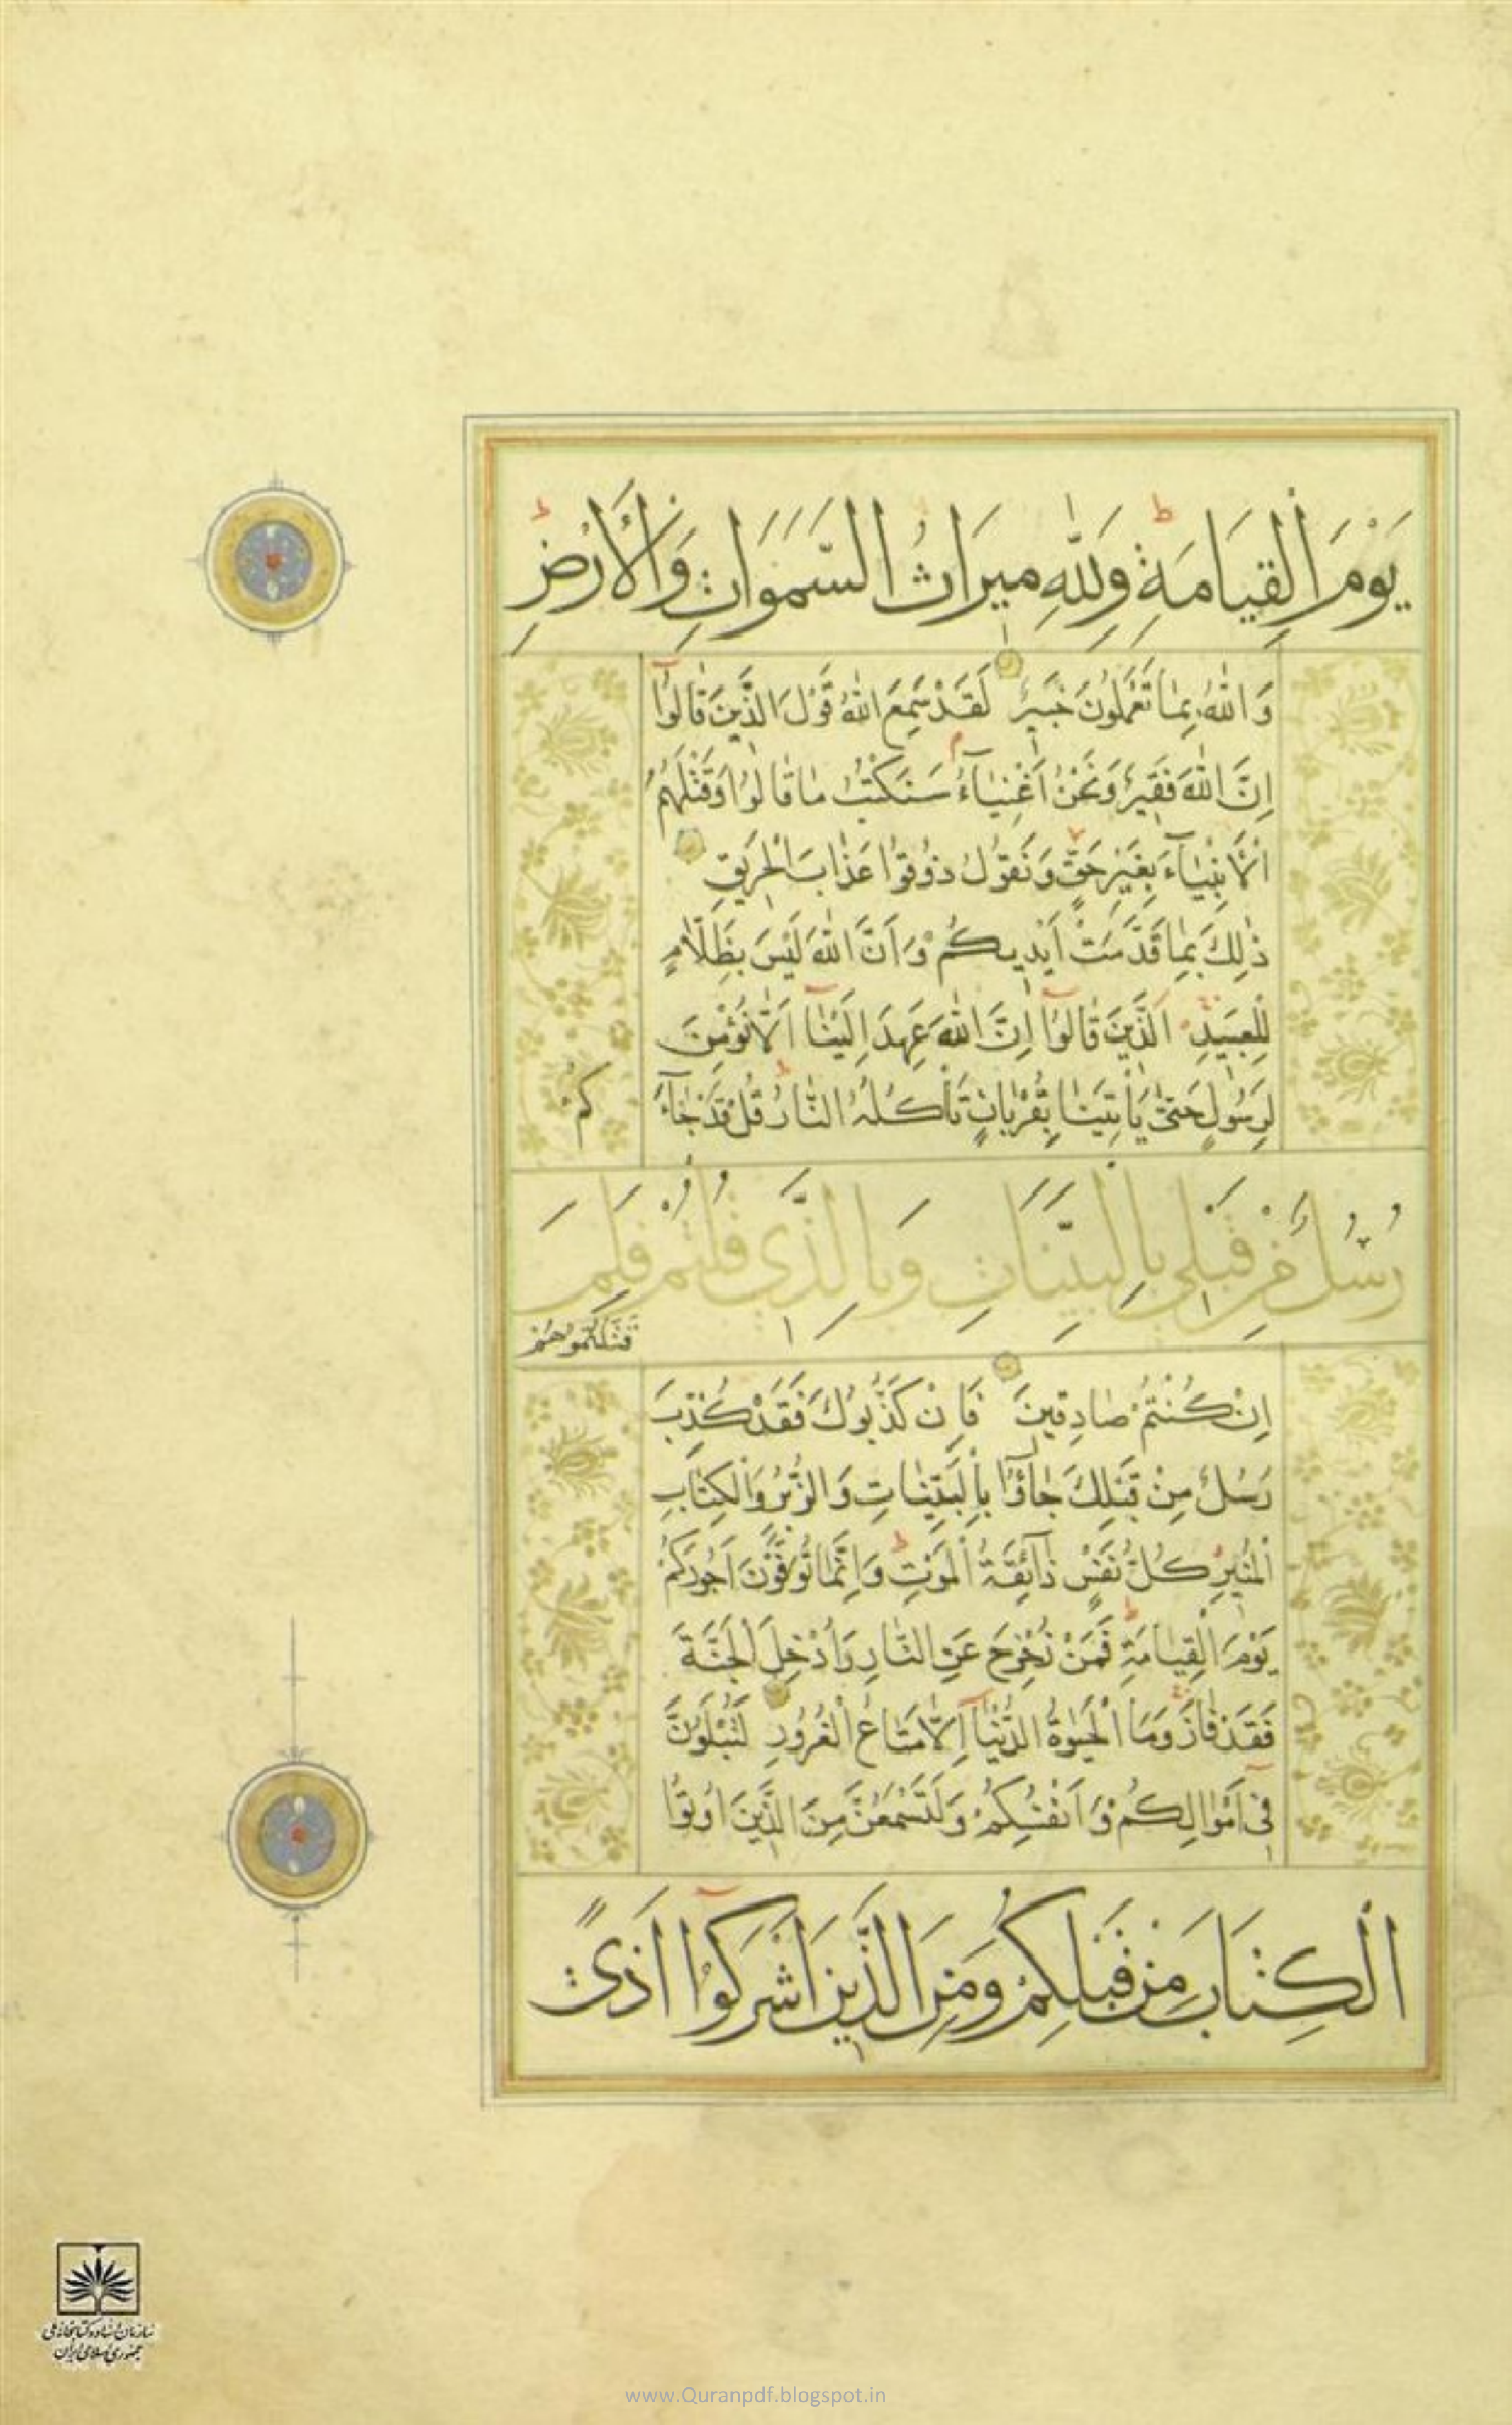 يَوْمَ الْقِيَامَةِ وَلِلّٰهِ مِيرَاثُ السَّمَوَاتِ وَالْأَرْضِ
وَاللّٰهُ بِمَا تَعْمَلُونَ خَبِيرٌ لَقَدْ سَمِعَ اللّٰهُ قَوْلَ الَّذِينَ قَالُوٓا
اِنَّ اللّٰهَ فَقِيرٌ وَنَحْنُ اَغْنِيَآءُ سَنَكْتُبُ مَا قَالُوا وَقَتْلَهُمُ
الْاَنْبِيَآءَ بِغَيْرِ حَقٍّ وَنَقُولُ ذُوقُوا عَذَابَ الْحَرِيقِ
ذٰلِكَ بِمَا قَدَّمَتْ اَيْدِيكُمْ وَاَنَّ اللّٰهَ لَيْسَ بِظَلَّامٍ
لِلْعَبِيدِ اَلَّذِينَ قَالُوٓا اِنَّ اللّٰهَ عَهِدَ اِلَيْنَآ اَلَّا نُؤْمِنَ
لِرَسُولٍ حَتّٰى يَأْتِيَنَا بِقُرْبَانٍ تَأْكُلُهُ النَّارُ قُلْ قَدْ جَآءَ
كُمْ
رُسُلٌ مِنْ قَبْلِي بِالْبَيِّنَاتِ وَبِالَّذِي قُلْتُمْ فَلِمَ
قَتَلْتُمُوهُمْ
اِنْ كُنْتُمْ صَادِقِينَ فَاِنْ كَذَّبُوكَ فَقَدْ كُذِّبَ
رُسُلٌ مِنْ قَبْلِكَ جَآؤُا بِالْبَيِّنَاتِ وَالزُّبُرِ وَالْكِتَابِ
الْمُنِيرِ كُلُّ نَفْسٍ ذَآئِقَةُ الْمَوْتِ وَاِنَّمَا تُوَفَّوْنَ اُجُورَكُمْ
يَوْمَ الْقِيَامَةِ فَمَنْ زُحْزِحَ عَنِ النَّارِ وَاُدْخِلَ الْجَنَّةَ
فَقَدْ فَازَ وَمَا الْحَيٰوةُ الدُّنْيَآ اِلَّا مَتَاعُ الْغُرُورِ لَتُبْلَوُنَّ
فِىٓ اَمْوَالِكُمْ وَاَنْفُسِكُمْ وَلَتَسْمَعُنَّ مِنَ الَّذِينَ اُوتُوا
الْكِتَابَ مِنْ قَبْلِكُمْ وَمِنَ الَّذِينَ اَشْرَكُوٓا اَذًى
سازمان اسناد و کتابخانه ملی
جمهوری اسلامی ایران
www.Quranpdf.blogspot.in